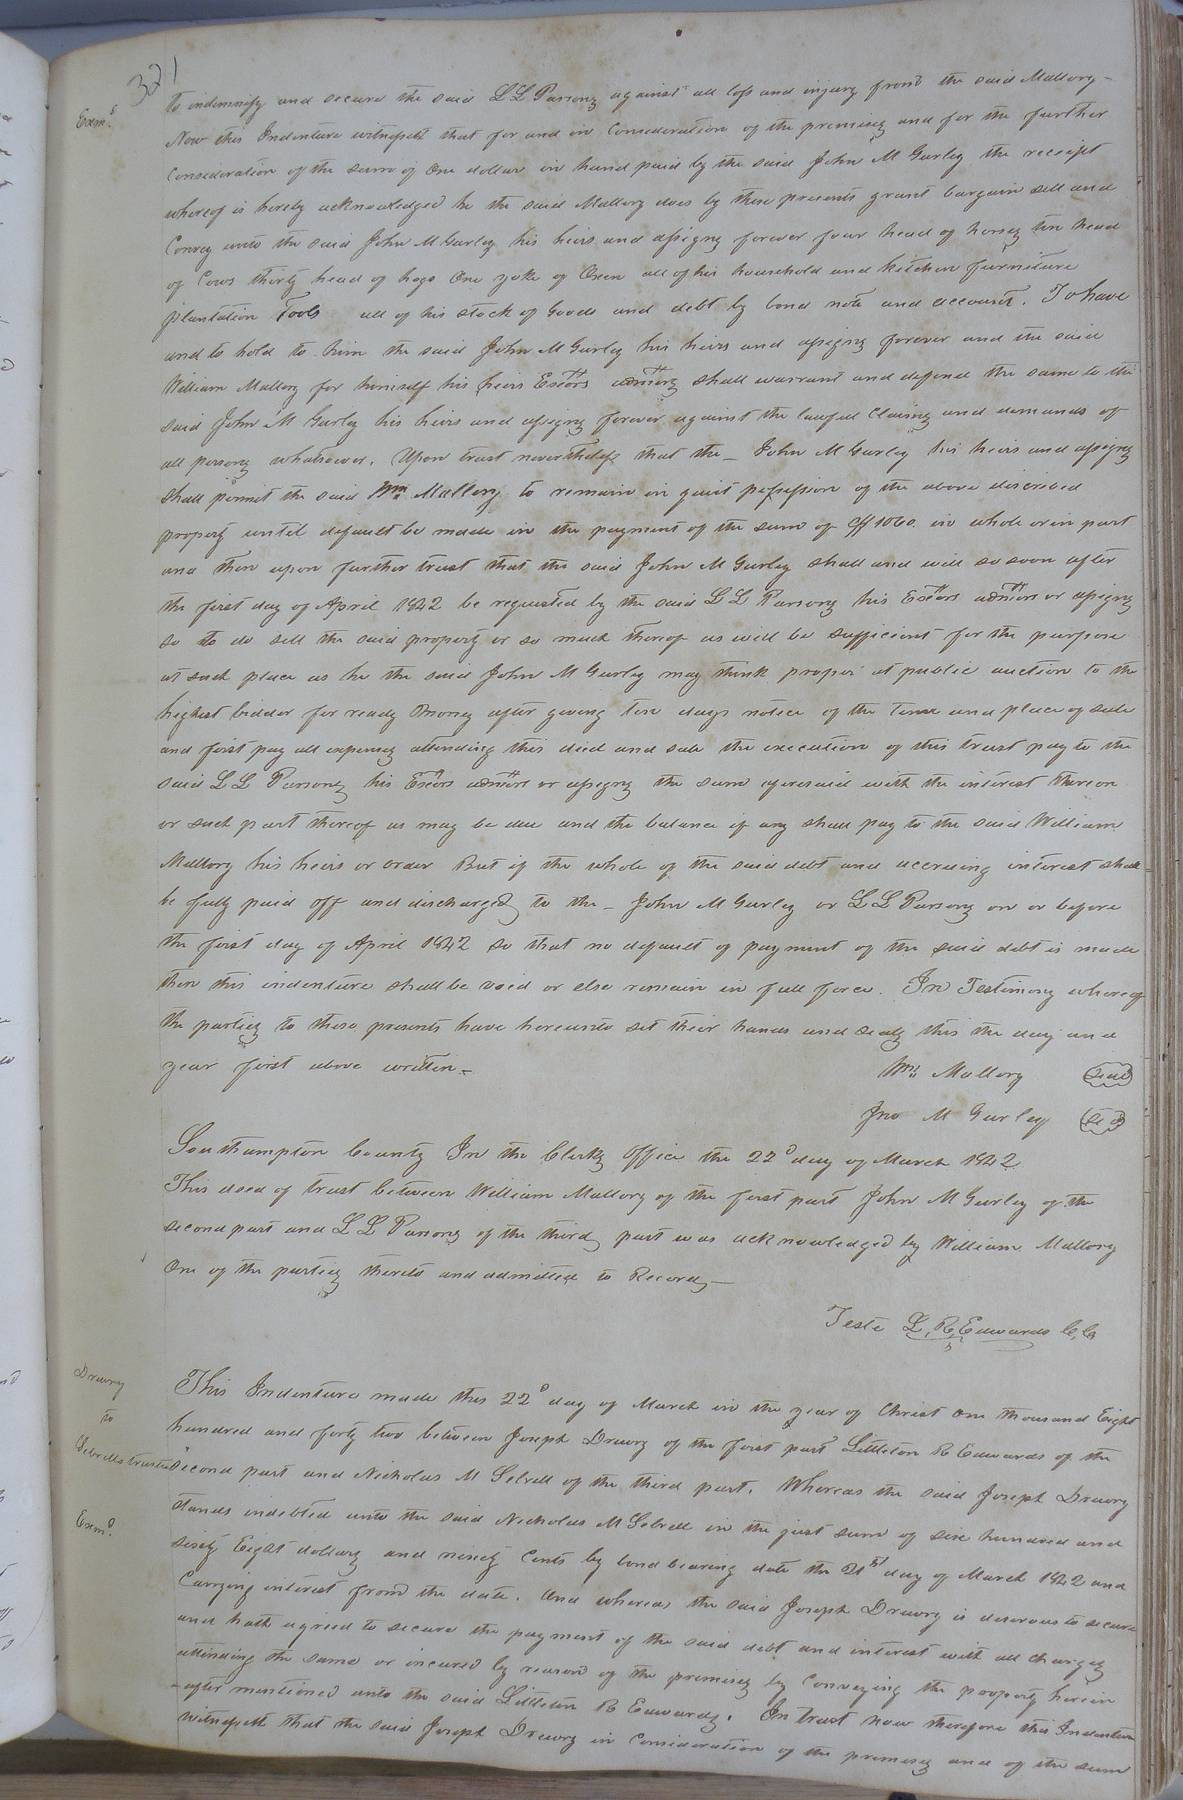 321
Exm.d
to indemnify and secure the said L L Parsons against all loss and injury from the said Mallory -
Now this Indenture witnesseth that for and in Consideration of the premises and for the further
Consideration of the sum of One dollar in hand paid by the said John M Gurley the receipt
whereof is hereby acknowledged he the said Mallory does by these presents grant bargain sell and
Convey unto the said John M Gurley his heirs and assigns forever four head of horses ten head
of Cows thirty head of hogs One yoke of Oxen all of his household and kitchen furniture
plantation Tools all of his stock of Goods and debt by bond note and account. To have
and to hold to him the said John M Gurley his heirs and assigns forever and the said
William Mallory for himself his heirs Exŏrs admors shall warrant and defend the same to the
said John M Gurley his heirs and assigns forever against the lawful Claims and demands of
all persons whatsoever. Upon trust nevertheless that the - John M Gurley his heirs and assigns
shall permit the said Wm. Mallory to remain in quiet possession of the above discribed
property until default be made in the payment of the sum of $1060. in whole or in part
and then upon further trust that the said John M Gurley shall and will so soon after
the first day of April 1842 be requested by the said L L Parsons his Exors admors or assigns
so to do sell the said property or so much thereof as will be sufficient for the purpose
at such place as he the said John M Gurley may think proper at public auction to the
highest bidder for ready Money after giving ten days notice of the time and place of sale
and first pay all expenses attending this deed and sale the execution of this trust pay to the
said L L Parsons his Exors admors or assigns the sum aforesaid with the interest thereon
or such part thereof as may be due and the balance if any shall pay to the said William
Mallory his heirs or order But if the whole of the said debt and accruing interest shall
be fully paid off and discharged to the - John M Gurley or L L Parsons on or before
the first day of April 1842 so that no default of payment of the said debt is made
then this indenture shall be void or else remain in full force. In Testimony whereof
the parties to these presents have hereunto set their hands and seals this the day and
year first above written -
Wm. Mallory Seal
Jno M Gurley Seal
Southampton County In the Clerks Office the 22d day of March 1842
This deed of trust between William Mallory of the first part John M Gurley of the
second part and L L Parsons of the third part was acknowledged by William Mallory
One of the parties thereto and admitted to Record -
Teste L. R. Edwards C, C,
Drewry
to
Sebrells trustee
Exm.d
This Indenture made this 22d day of March in the year of Christ One thousand Eight
hundred and forty two between Joseph Drewry of the first part Littleton R Edwards of the
second part and Nicholas M Sebrell of the third part. Whereas the said Joseph Drewry
stands indebted unto the said Nicholas M Sebrell in the just sum of six hundred and
sixty Eight dollars and ninety Cents by bond bearing date the 21st day of March 1842 and
Carrying interest from the date. And whereas the said Joseph Drewry is desirous to secure
and hath agreed to secure the payment of the said debt and interest with all charges
attending the same or incured by reason of the premises by Conveying the property herein
- after mentioned unto the said Littleton R Edwards. In trust now therefore this Indenture
witnesseth that the said Joseph Drewry in Consideration of the premises and of the sum